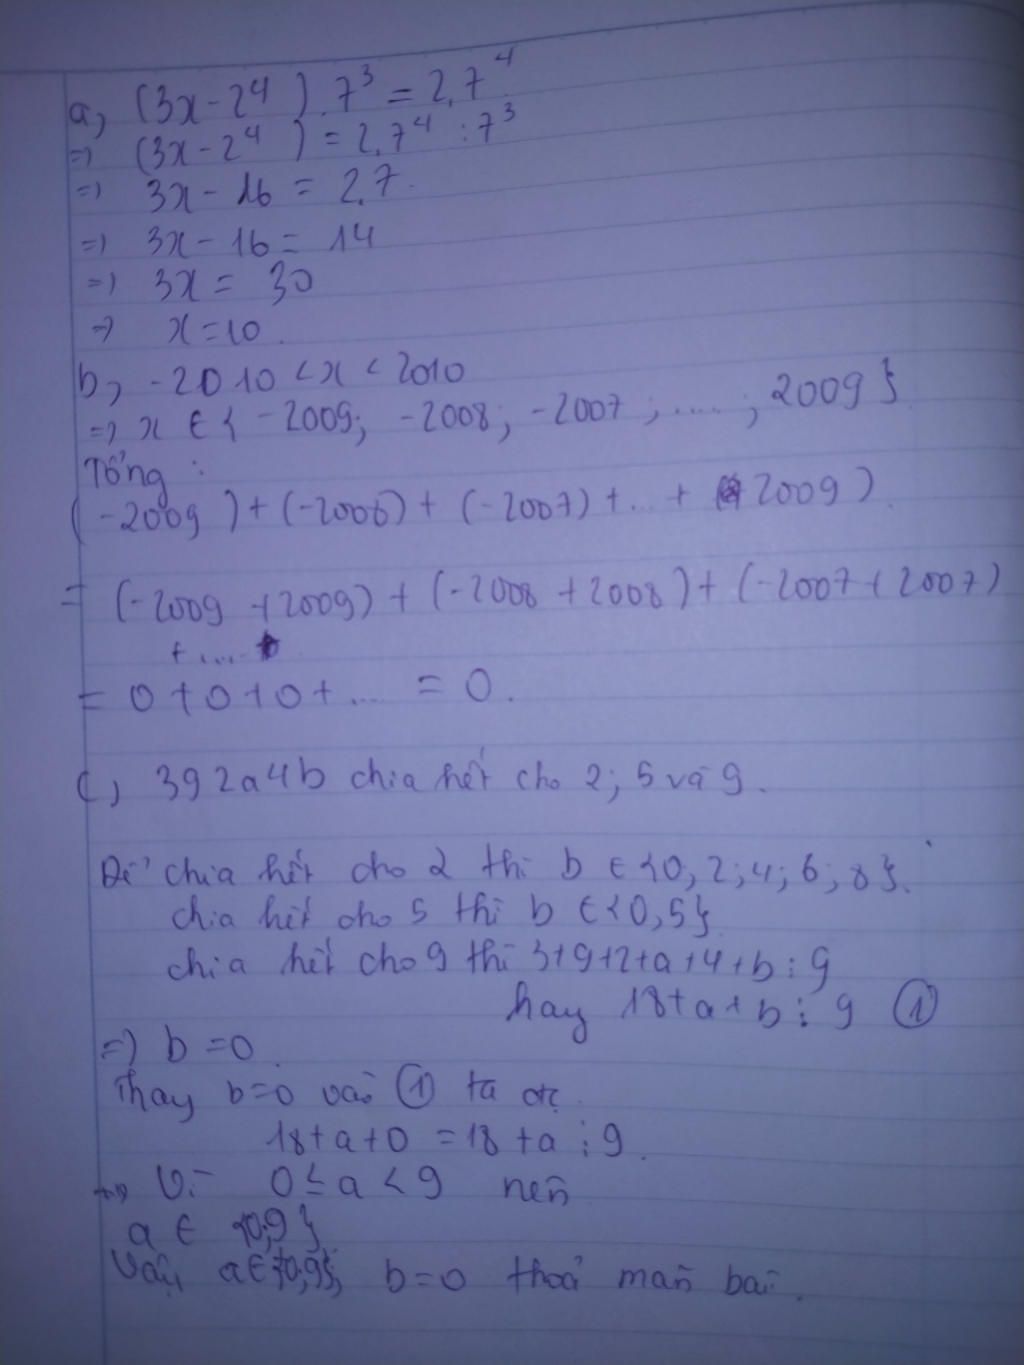 a, (3x-2⁴).7³ = 2.7⁴
=> (3x-2⁴) = 2.7⁴ : 7³
=> 3x - 16 = 2.7.
=> 3x - 16 = 14
=> 3x = 30
=> x = 10.
b, -2010 < x < 2010
=> x ∈ { -2009; -2008; -2007; ....; 2009}
Tổng :
(-2009) + (-2008) + (-2007) + ... + 2009)
= (-2009 + 2009) + (-2008 + 2008) + (-2007 + 2007)
+ ....
= 0 + 0 + 0 + .... = 0.
c, 392a4b chia hết cho 2; 5 và 9.
Để chia hết cho 2 thì b ∈ {0; 2; 4; 6; 8}.
chia hết cho 5 thì b ∈ {0, 5}
chia hết cho 9 thì 3+9+2+a+4+b ⋮ 9
hay 18+a+b ⋮ 9 ①
=> b = 0.
Thay b=0 vào ① ta đc
18+a+0 = 18+a ⋮ 9.
Vì 0 ≤ a < 9 nên
a ∈ {0;9}
Vậy a ∈ {0;9}; b=0 thoả mãn bài.